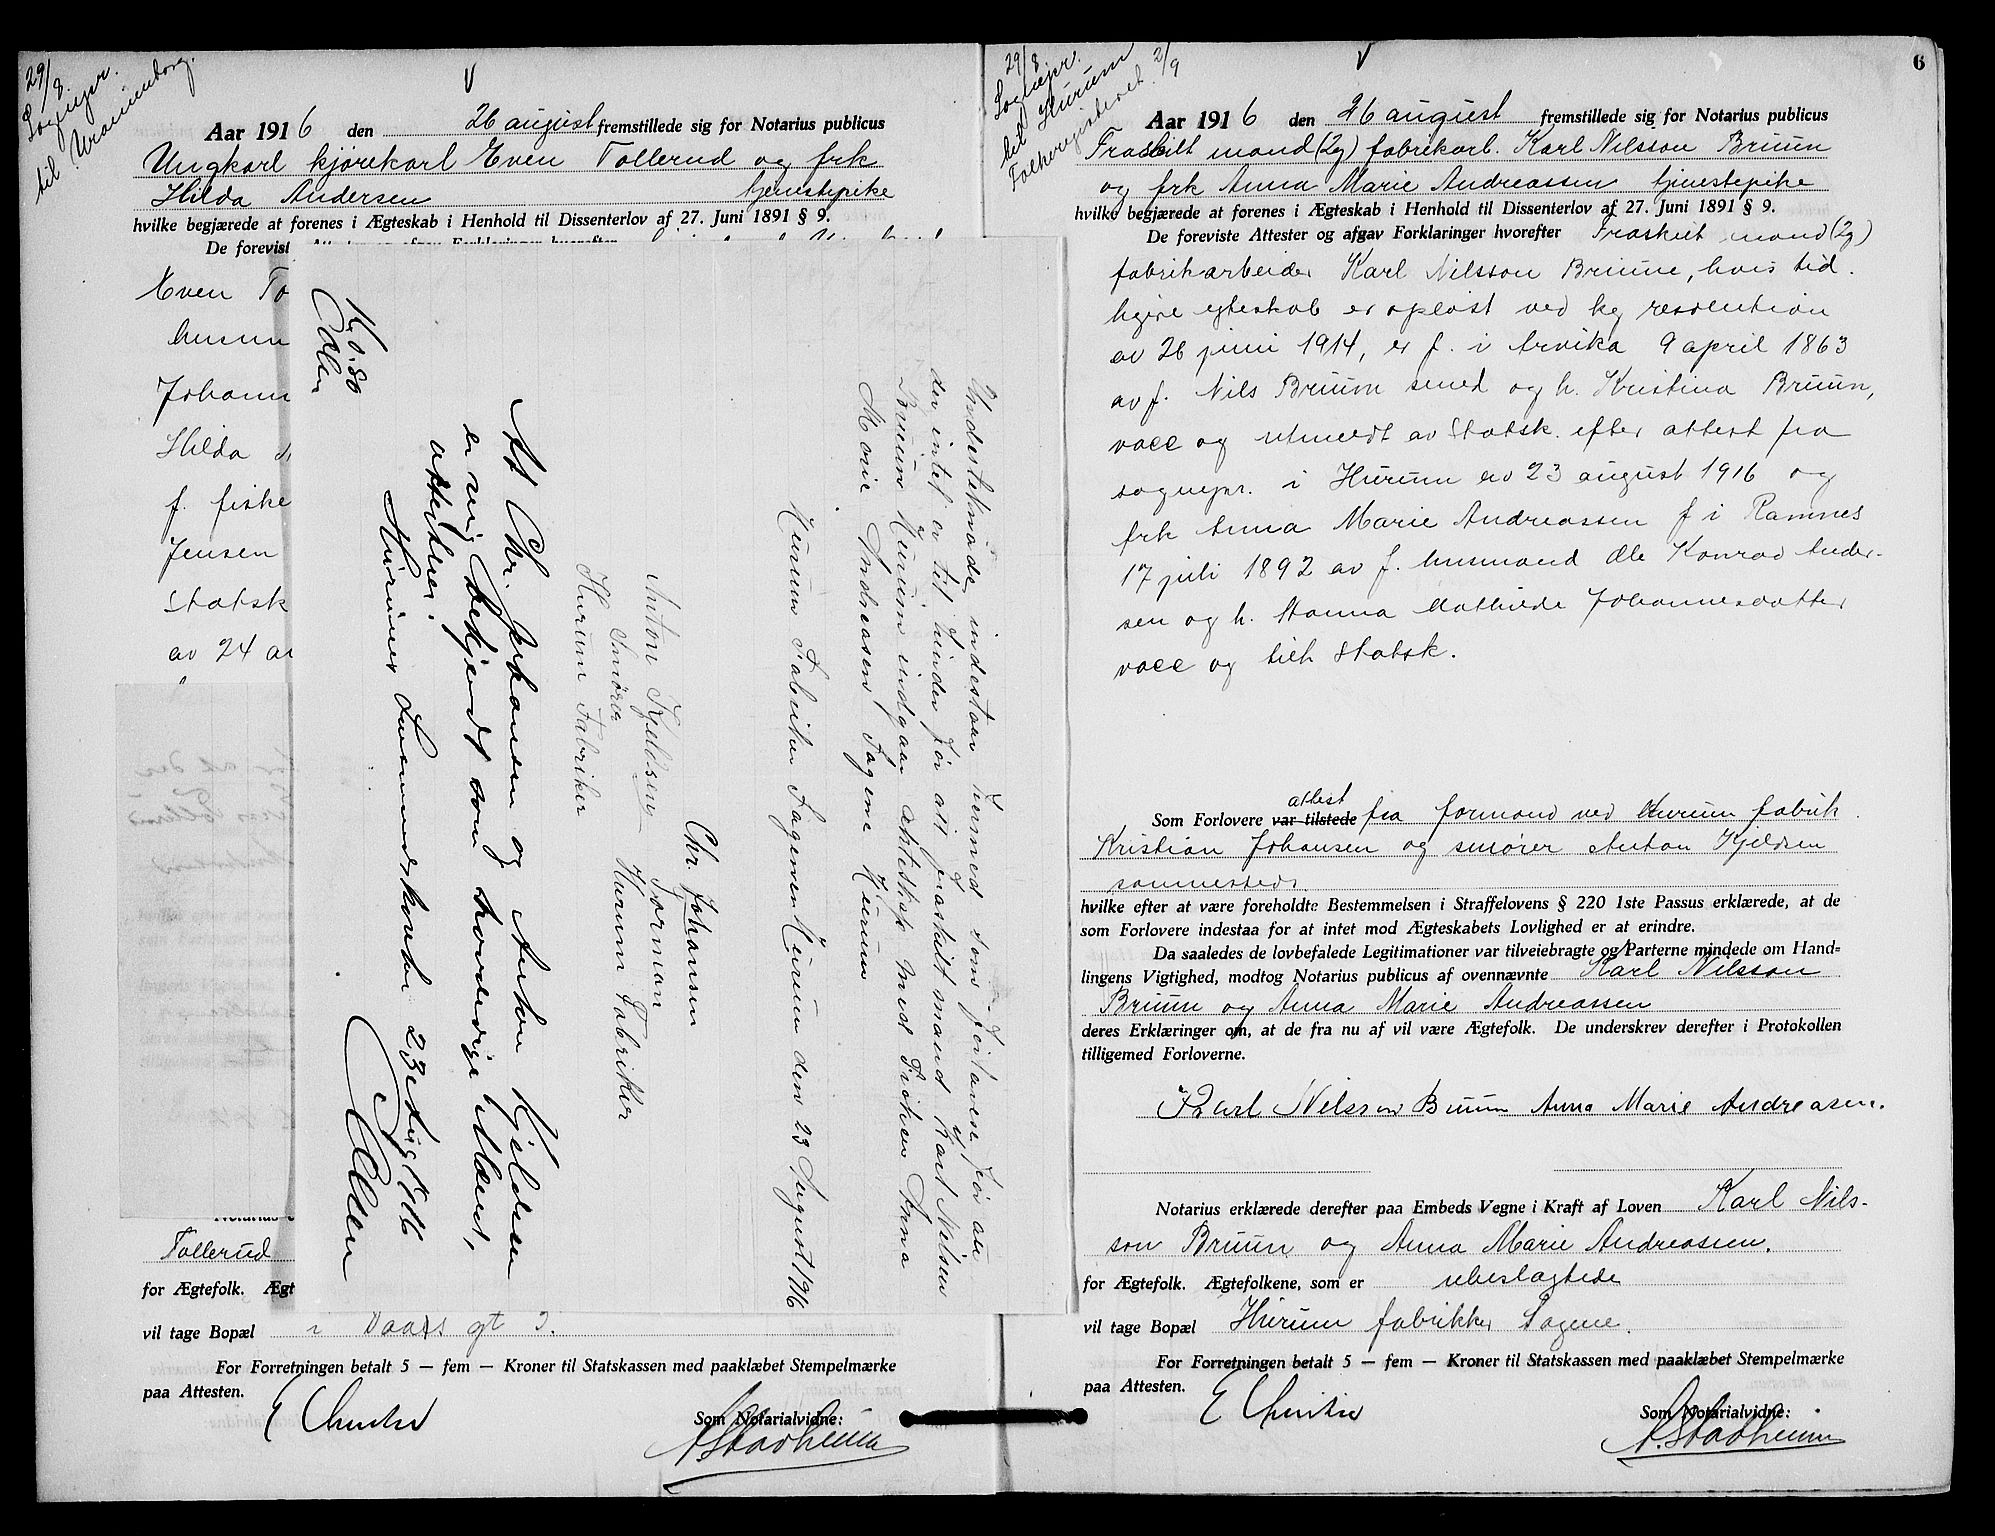 29/8.
Sognepr.
til Uranienborg.
Aar 1916 den 26 august fremstillede sig for Notarius publicus
Ungkarl kjørekarl Even Tollerud og frk
Hilda Andersen tjenestepike
hvilke begjærede at forenes i Ægteskab i Henhold til Dissenterlov af 27. Juni 1891 § 9.
De forevist
Even To
husm
Johann
Hilda
f. fiske
Jensen
Statsk
av 24 au
Tollerud
for Ægtefolk. Ægt
vil tage Bopæl i Daas gt 5.
For Forretningen betalt 5 — fem — Kroner til Statskassen med paaklæbet Stempelmærke
paa Attesten.
E Christie
Som Notarialvidne:
A Stadheim
Undertegnede indestaar hermed som forlovere for at
der intet er til hinder for att fraskilt mand Karl Nilsen
Bruum Hurum indgaar Æteskap med Frøken Anna
Marie Andreasen Sagene Hurum
Hurum Fabriker Sagenen Hurum den 23 August 1916
Chr. Johansen
Anton Kjeldsen Forman
Smörer Hurum Fabriker
Hurum Fabriker
At Chr. Johansen og Anton Kjeldsen
er mig bekjendt som troværdige Mænd,
attesterer.
Hurums Lensmandskontor 23de Aug 1916
Kr 0.80
29/8.
Sognepr.
ved Hurum
Folkeregisteret 2/9
6
Aar 1916 den 26 august fremstillede sig for Notarius publicus
Fraskilt mand (2g) fabrikarb. Karl Nilsson Bruun
og frk Anna Marie Andreassen tjenestepike
hvilke begjærede at forenes i Ægteskab i Henhold til Dissenterlov af 27. Juni 1891 § 9.
De foreviste Attester og afgav Forklaringer hvorefter Fraskilt mand (2g)
fabrikarbeider Karl Nilsson Bruun, hvis tid.
ligere egteskab er opløst ved kg resolution
av 26 juni 1914, er f. i Arvika 9 april 1863
av f. Nils Bruun smed og h. Kristina Bruun,
vacc og utmeldt av Statsk. efter attest fra
sognepr. i Hurum av 23 august 1916 og
frk Anna Marie Andreassen f i Ramnes
17 juli 1892 av f. husmand Ole Konrad Ander-
sen og h. Hanna Mathilde Johannesdatter
vacc og tilh Statsk.
attest
Som Forlovere var tilstede fra formand ved Hurum fabrik
Kristian Johansen og smører Anton Kjeldsen
sammesteds
hvilke efter at være foreholdte Bestemmelsen i Straffelovens § 220 1ste Passus erklærede, at de
som Forlovere indestaa for at intet mod Ægteskabets Lovlighed er at erindre.
Da saaledes de lovbefalede Legitimationer var tilveiebragte og Parterne mindede om Hand=
lingens Vigtighed, modtog Notarius publicus af ovennævnte Karl Nilsson
Bruun og Anna Marie Andreassen
deres Erklæringer om, at de fra nu af vil være Ægtefolk. De underskrev derefter i Protokollen
tilligemed Forloverne.
Karl Nilsson Bruun Anna Marie Andreasen.
Notarius erklærede derefter paa Embeds Vegne i Kraft af Loven Karl Nils-
son Bruun og Anna Marie Andreassen.
for Ægtefolk. Ægtefolkene, som er ubeslægtede
vil tage Bopæl Hurum fabrikker Sagene.
For Forretningen betalt 5 — fem — Kroner til Statskassen med paaklæbet Stempelmærke
paa Attesten.
E Christie
Som Notarialvidne:
A. Stadheim